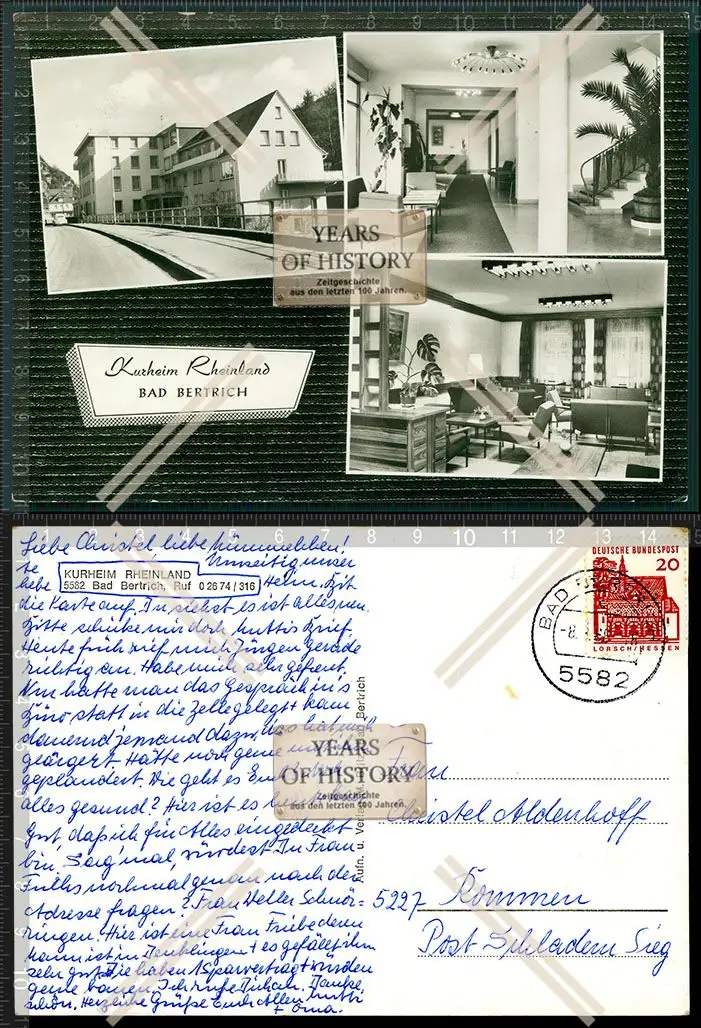 YEARS
OF HISTORY
Zeitgeschichte
aus den letzten 100 Jahren.
Kurheim Rheinland
BAD BERTRICH
Liebe Christel, liebe
Umseitig unser
KURHEIM RHEINLAND
5582 Bad Bertrich, Ruf 0 26 74 / 316
Heim. Bit
die Karte auf. Du siehst, es ist alles neu.
Bitte schicke mir doch Mutti's Brief.
Heute früh rief mich Jürgen gerade
richtig an. Habe mich sehr gefreut.
Nur hatte man das Gespräch in's
Büro statt in die Zelle gelegt + kam
dauernd jemand dazu, das hat mich
geärgert. Hätte noch gerne
geplaudert. Wie geht es Euch
alles gesund? Hier ist es
gut, daß ich für Alles eingedeckt
bin. Sag' mal, würdest Du Frau
Fuchs nochmal genau nach der
Adresse fragen? Frau Weller
Hier ist eine Frau Friebe deren
Mann ist in + es gefällt ihm
sehr gut. Die haben 1 Sparvertrag + würden
gerne bauen. Ich rufe Dich an. Danke
schön. Herzliche Grüße Euch Allen Mutti
+ Oma.
Aufn. u. Verlag Bertrich
YEARS
OF HISTORY
Zeitgeschichte
aus den letzten 100 Jahren.
DEUTSCHE BUNDESPOST
20
LORSCH/HESSEN
BAD BERTRICH
5582
Frau
Christel Aldenhoff
5227 Kommen
Post Schladern Sieg